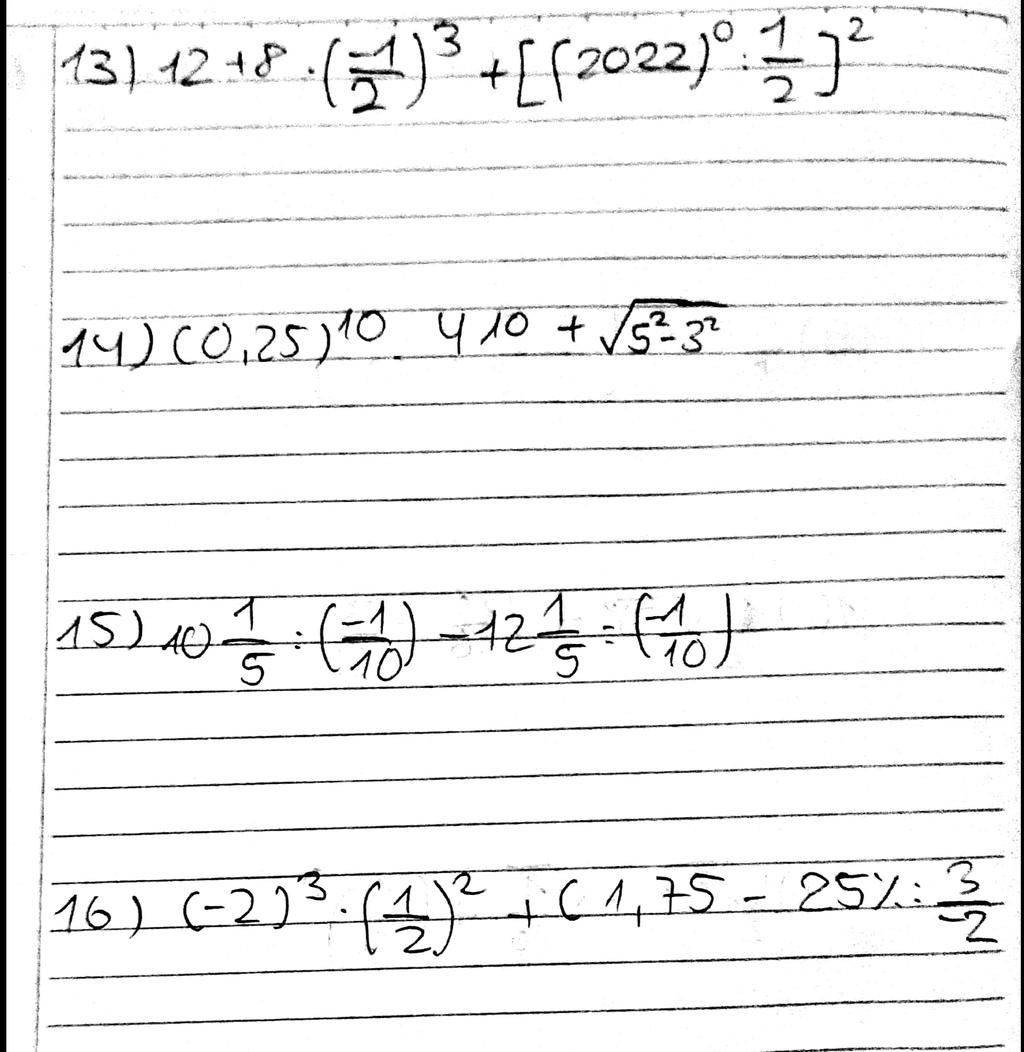 13) 12 + 8 · (-1/2)³ + [(2022)⁰ : 1/2]²
14) (0,25)¹⁰ · 4 10 + √(5² - 3²)
15) 10 1/5 : (-1/10) - 12 1/5 : (-1/10)
16) (-2)³ · (1/2)² + ( 1,75 - 25% : 3/-2